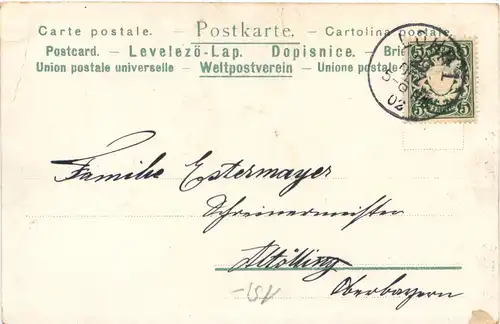 Carte postale. — Postkarte. — Cartolina postale.
Postcard. — Levelező-Lap. Dopisnice. — Brie
Union postale universelle — Weltpostverein — Unione postale
5 5
5 5
02
Familie Estermayer
Schreinermeister
Altötting
Oberbayern